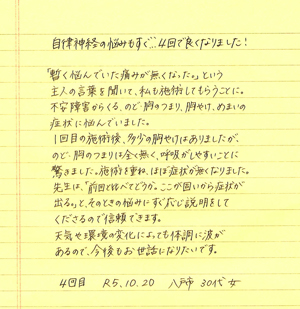 自律神経の悩みもすぐ…4回で良くなりました!
「暫く悩んでいた痛みが無くなった。」という
主人の言葉を聞いて、私も施術してもらうことに。
不安障害からくる、のど・胸のつまり、胸やけ、めまいの
症状に悩んでいました。
1回目の施術後、多少の胸やけはありましたが、
のど・胸のつまりは全く無く、呼吸がしやすいことに
驚きました。施術を重ね、ほぼ症状が無くなりました。
先生は、「前回と比べてどうか。ここが固いから症状が
出る。」と、そのときの悩みにすぐ応じ説明をして
くださるので信頼できます。
天気や環境の変化によっても体調に波が
あるので、今後もお世話になりたいです。
4回目 R5.10.20 八戸市 30代 女